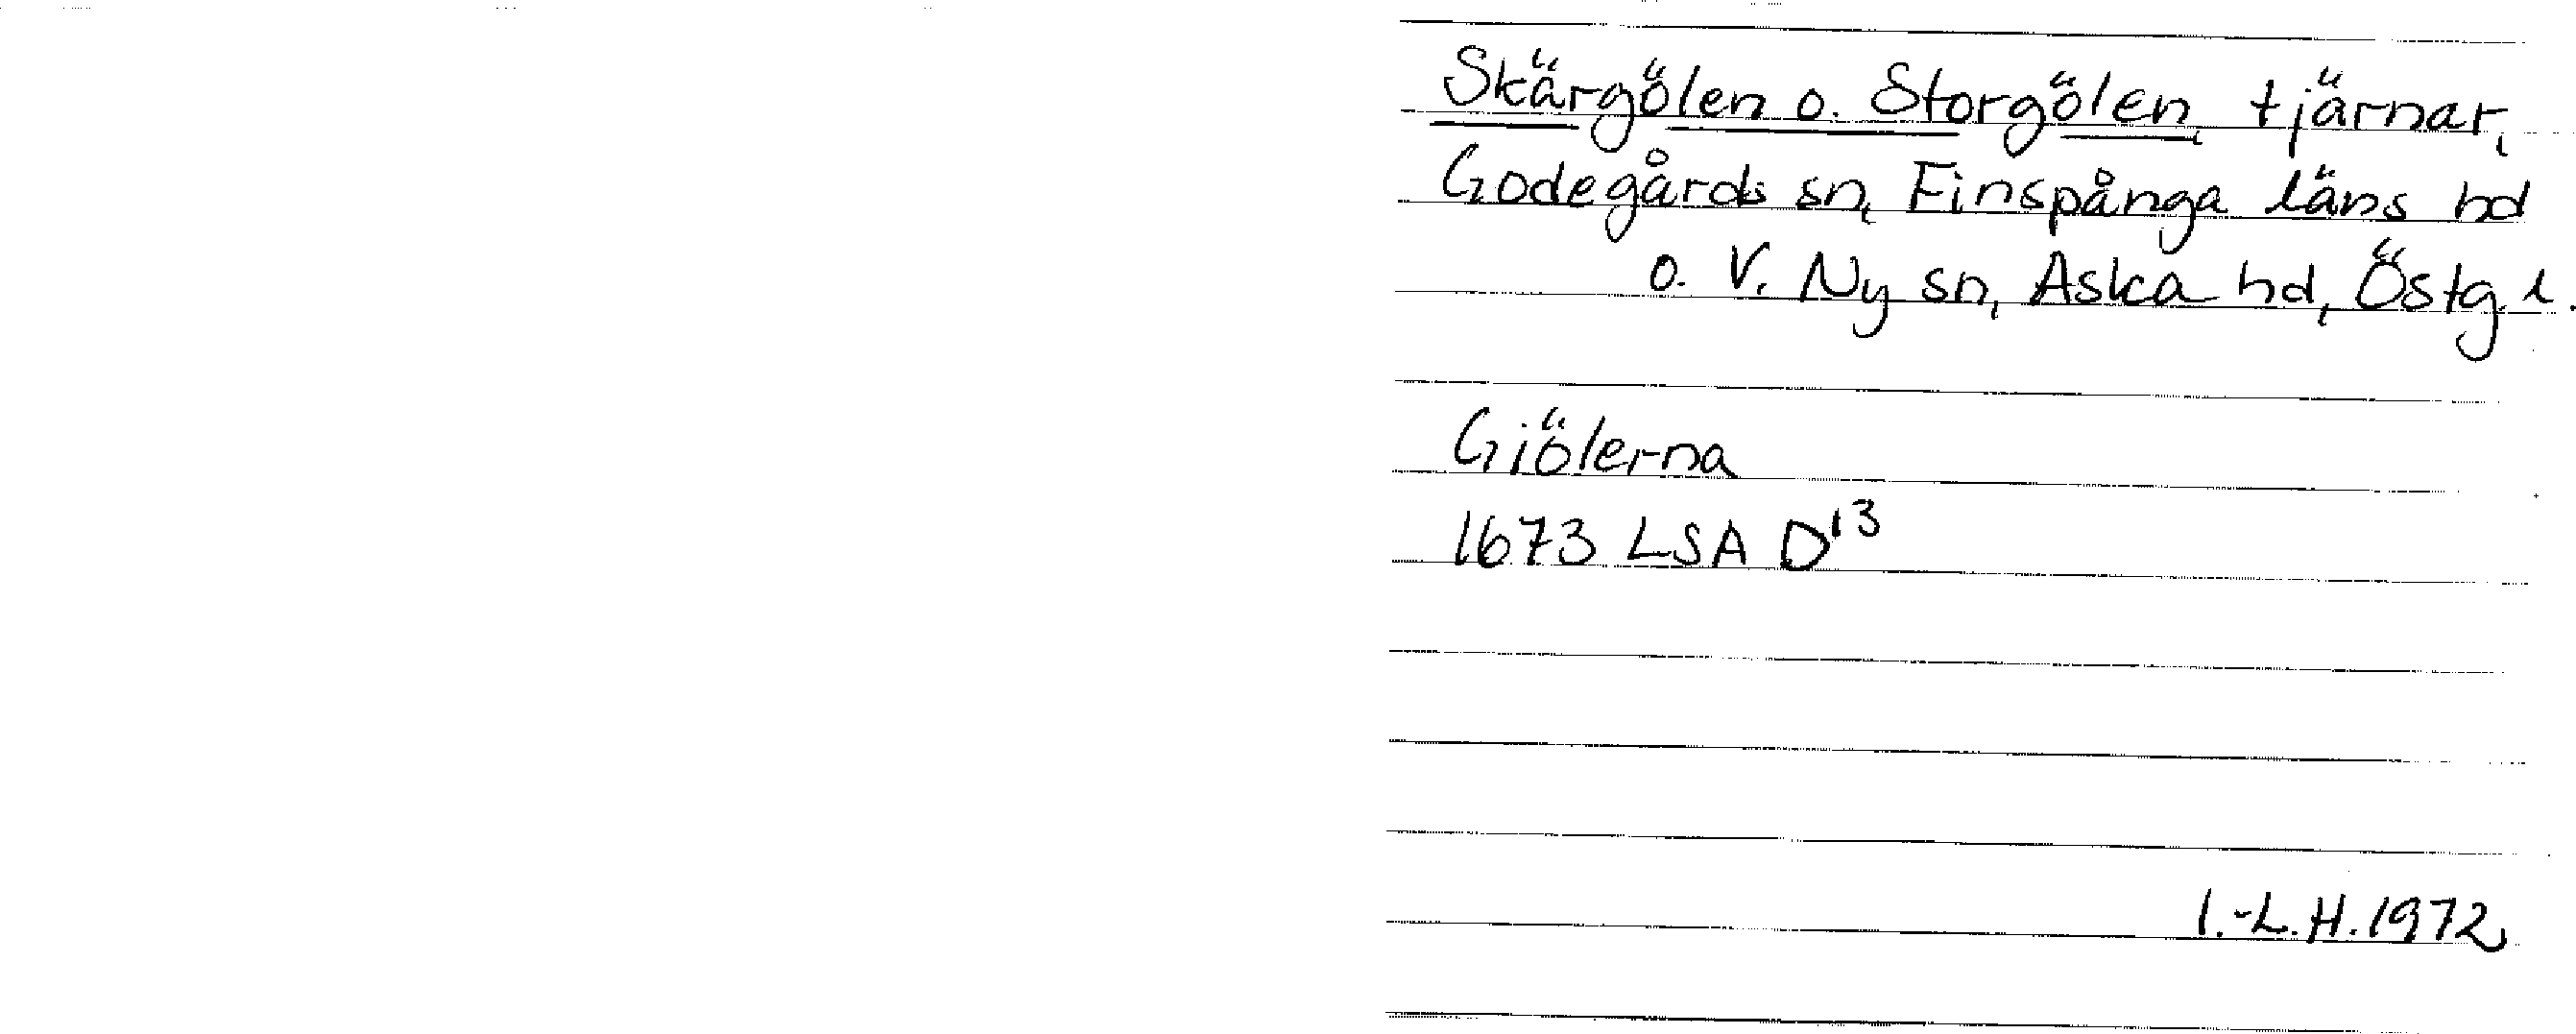 Skärgölen o. Storgölen, tjärnar,
Godegårds sn, Finspånga läns hd
o. V. Ny sn, Aska hd, Östg. l.
Giölerna
1673 LSA D13
I.-L.H. 1972